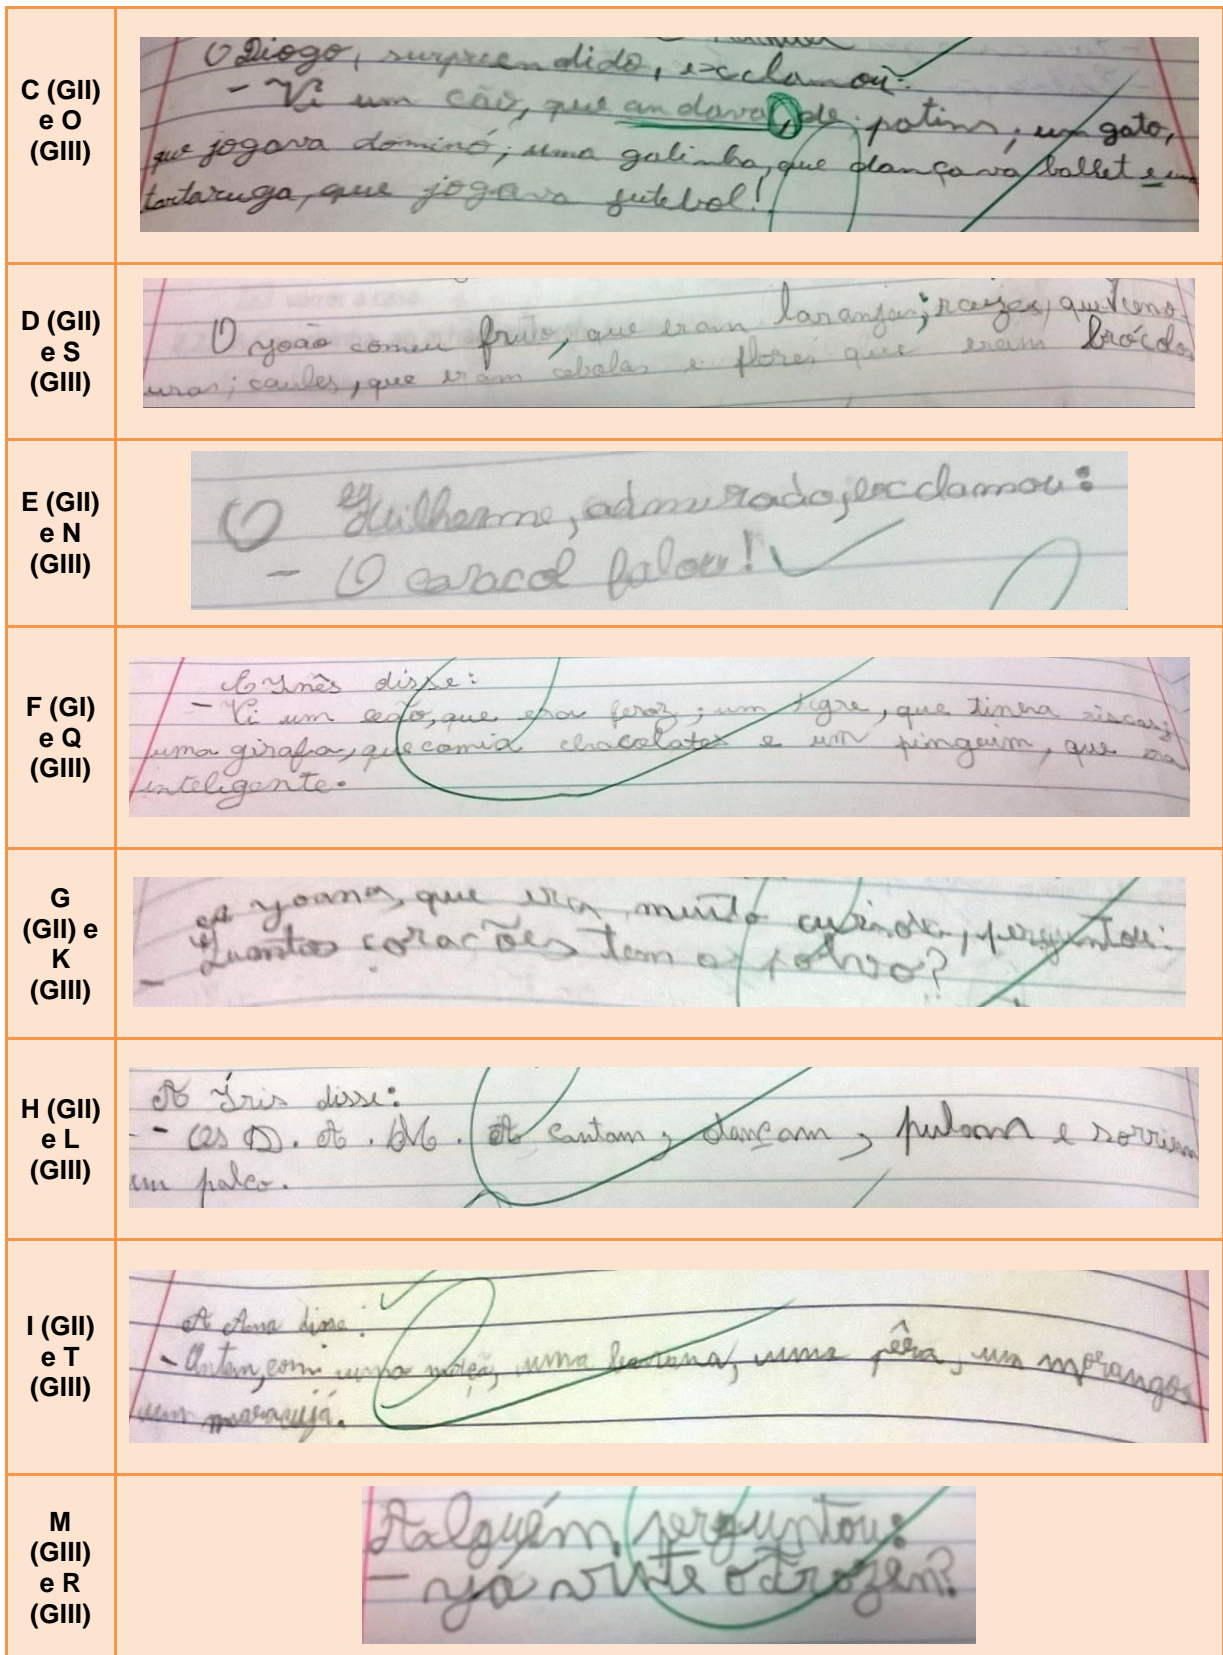 C (GII)
e O
(GIII)
O Diogo, surpreendido, exclamou:
- Vi um cão, que andava, de patins; um gato,
que jogava dominó; uma galinha, que dançava ballet e uma
tartaruga, que jogava futebol!
D (GII)
e S
(GIII)
O João comeu fruto, que eram laranjas; raízes, que
uras; caules, que eram cebolas e flores que eram brócolos
E (GII)
e N
(GIII)
O Guilherme, admirado, exclamou:
- O caracol falou!
F (GI)
e Q
(GIII)
A Inês disse:
- Vi um leão, que era feroz; um tigre, que tinha riscas;
uma girafa, que comia chocolates e um pinguim, que era
inteligente.
G
(GII) e
K
(GIII)
A Joana, que era muito curiosa, perguntou:
- Quantos corações tem o polvo?
H (GII)
e L
(GIII)
A Íris disse:
- Os D. A. M. A cantam, dançam, pulam e sorriem
um palco.
I (GII)
e T
(GIII)
A Ana disse:
- Ontem, comi uma maçã, uma banana, uma pêra, um morango
um maracujá.
M
(GIII)
e R
(GIII)
Alguém perguntou:
- Já viste o